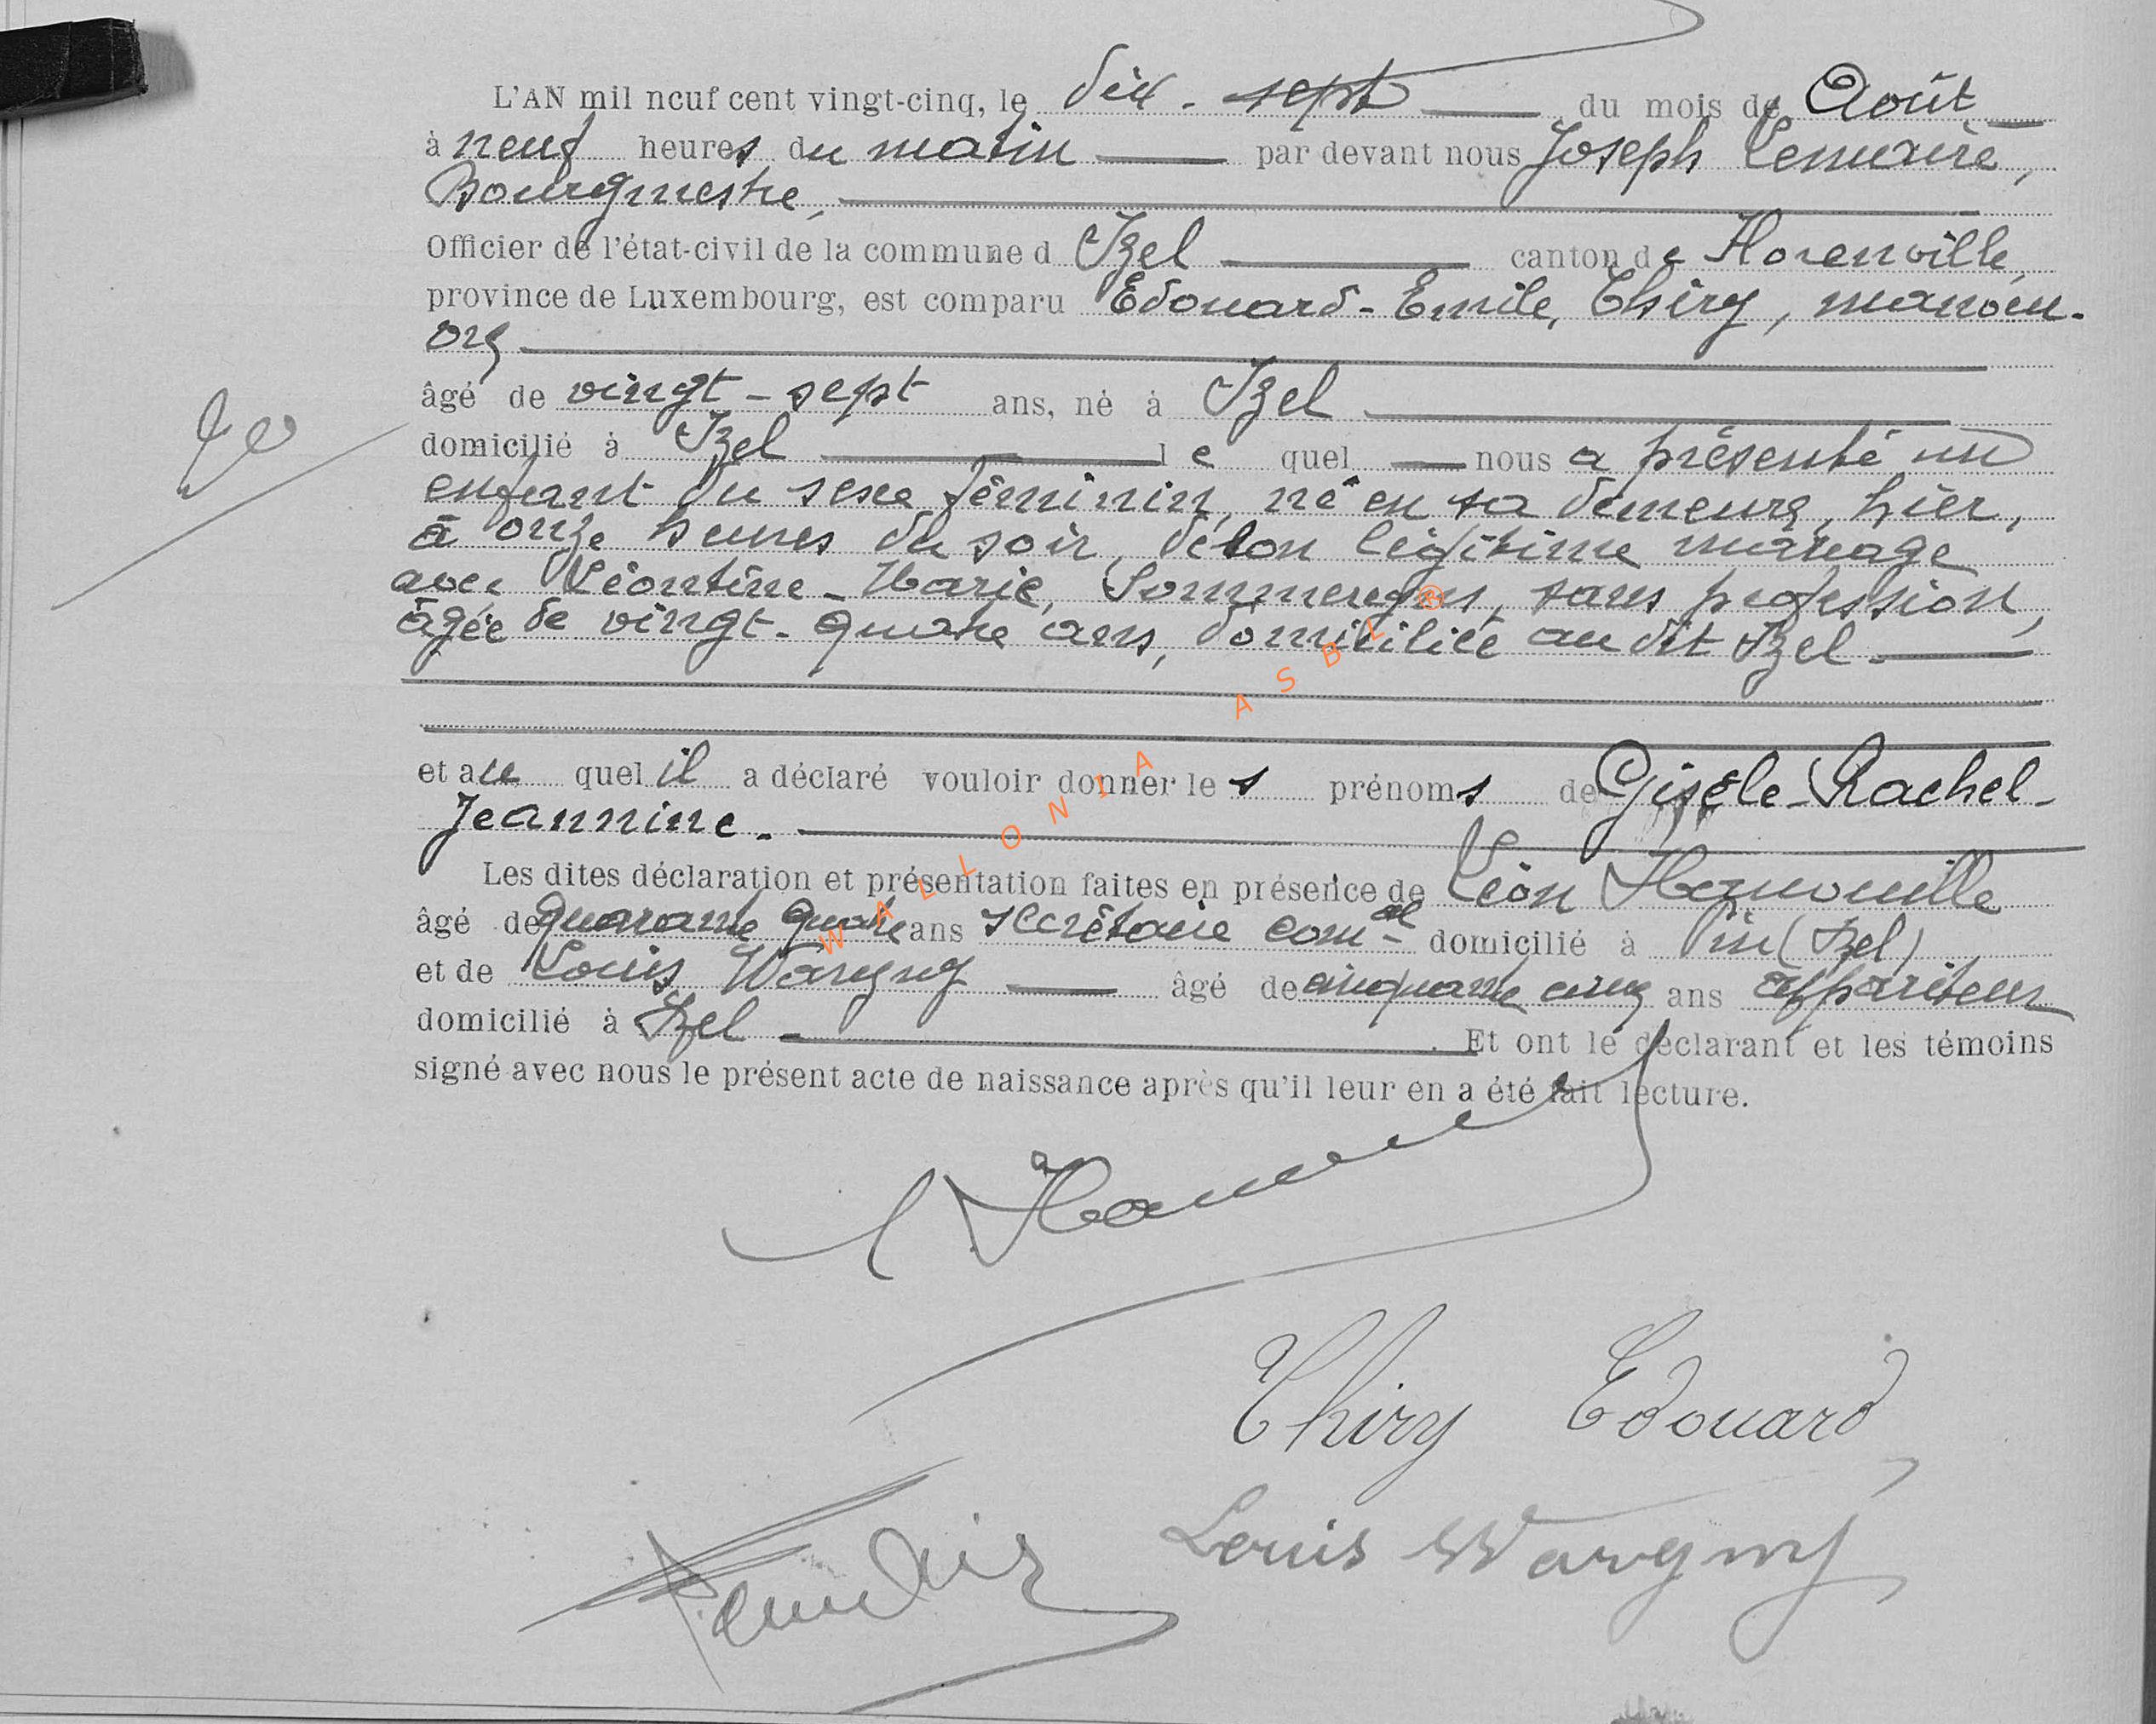 L'AN mil neuf cent vingt-cinq, le dix-sept du mois de Août
à neuf heures du matin par devant nous Joseph Lemaire,
Bourgmestre,
Officier de l'état-civil de la commune d Izel canton de Florenville
province de Luxembourg, est comparu Edouard-Emile, Thiry, manoeu-
vre
âgé de vingt-sept ans, né à Izel
domicilié à Izel le quel nous a présenté un
enfant du sexe féminin, né en sa demeure, hier,
à onze heures du soir, de son légitime mariage
avec Léontine-Marie, sans profession,
âgée de vingt-quatre ans, domiciliée au dit Izel
et au quel il a déclaré vouloir donner les prénoms de Gisèle-Rachel-
Jeannine.
Les dites déclaration et présentation faites en présence de Léon
âgé de quarante quatre ans secrétaire com-al domicilié à Pin (Izel)
et de Louis Wargny âgé de cinquante cinq ans appariteur
domicilié à Izel . Et ont le déclarant et les témoins
signé avec nous le présent acte de naissance après qu'il leur en a été fait lecture.
Thiry Edouard
Louis Wargny
WALLONIA ASBL ®